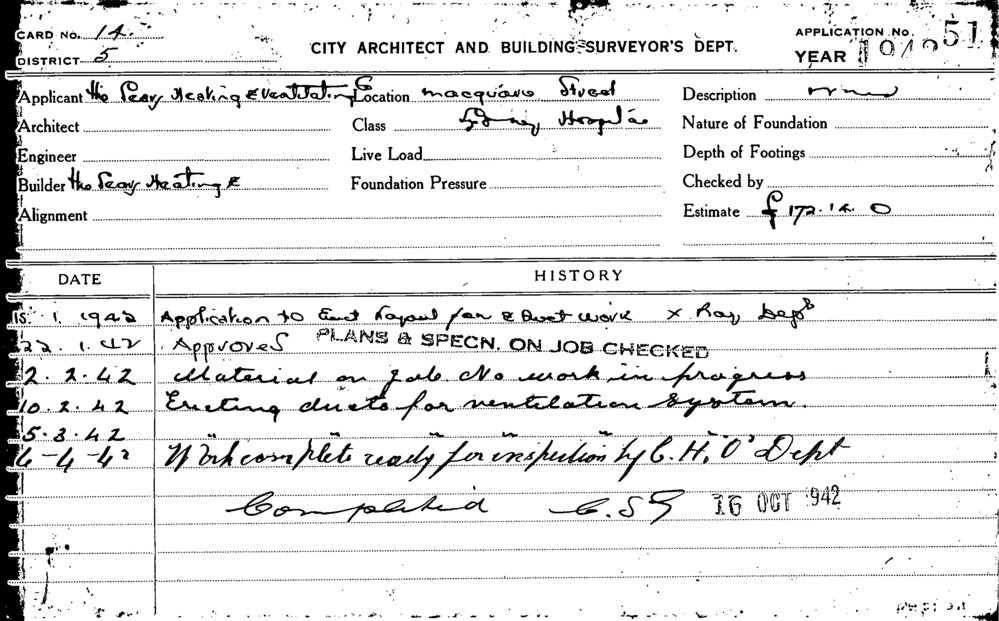 CARD No. 14.
DISTRICT 5
CITY ARCHITECT AND BUILDING SURVEYOR'S DEPT.
APPLICATION No. 51
YEAR 1942
Applicant The Peary Heating & Ventilating Location Macquarie Street Description
Architect Class Sydney Hospital Nature of Foundation
Engineer Live Load Depth of Footings
Builder The Peary Heating & Foundation Pressure Checked by
Alignment Estimate £ 172. 14. 0
DATE HISTORY
15. 1. 1942 Application to Erect Fan & Duct work X Ray Dept
22. 1. 42 Approved PLANS & SPECN. ON JOB CHECKED
2. 2. 42 Material on job No work in progress
10. 2. 42 Erecting ducts for ventilation system.
5. 3. 42 " " " " "
6-4-42 Work complete ready for inspection by C. H. O' Dept
Completed 16 OCT 942